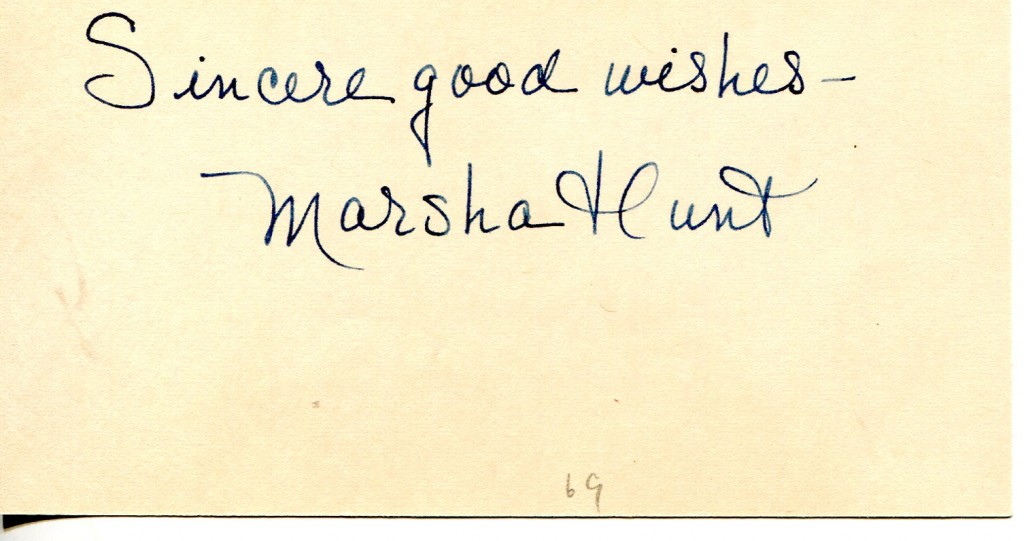 Sincere good wishes–
Marsha Hunt
69